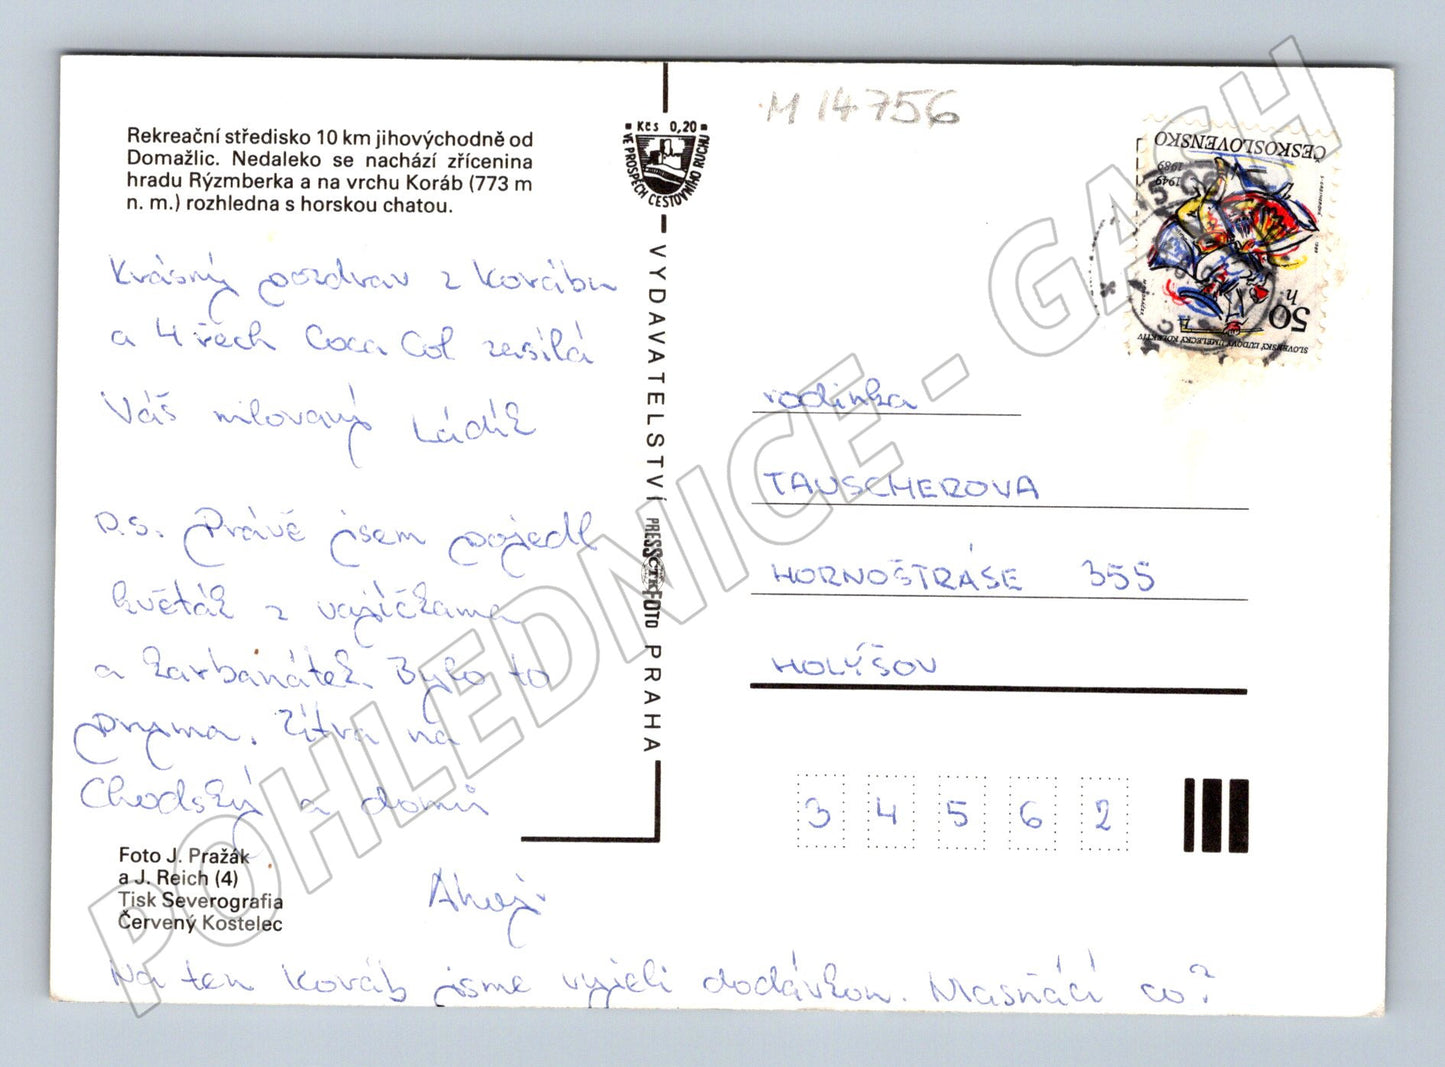 Rekreační středisko 10 km jihovýchodně od
Domažlic. Nedaleko se nachází zřícenina
hradu Rýzmberka a na vrchu Koráb (773 m
n. m.) rozhledna s horskou chatou.
Krásný pozdrav z Korábu
a 4 řech Coca Col zasílá
Váš milovaný Ládík
p.s. Právě jsem pojedl
květák z vajíčkama
a karbanátek Bylo to
pryma. Zítra na
Chodský a domů
Ahoj.
Na ten Koráb jsme vyjeli dodávkou. Masňáci co?
Foto J. Pražák
a J. Reich (4)
Tisk Severografia
Červený Kostelec
Kčs 0,20
VE PROSPĚCH CESTOVNÍHO RUCHU
VYDAVATELSTVÍ PRESSFOTO PRAHA
ČTK
M 14756
ČESKOSLOVENSKO
1949
1989
50 h
SLOVENSKÝ ĽUDOVÝ UMELECKÝ KOLEKTÍV
rodinka
TAUSCHEROVA
HORNOŠTRÁSE 355
HOLÝŠOV
3 4 5 6 2
POHLEDNICE - GASH